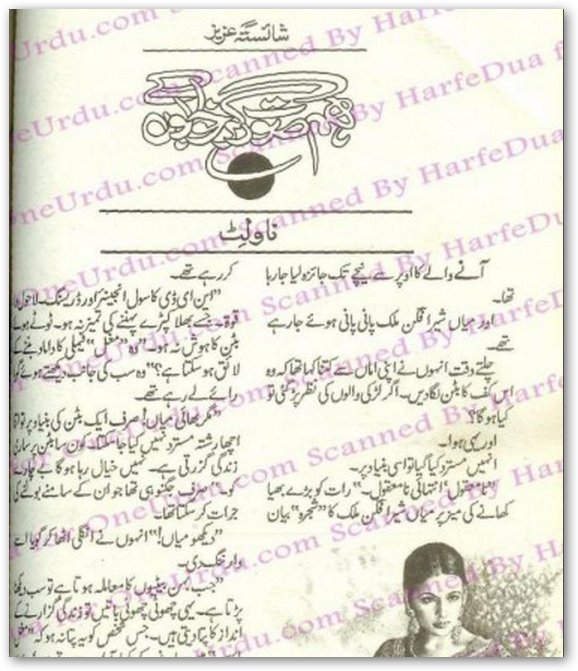 شائستہ عزیز
ناولٹ
آنے والے کا اوپر سے نیچے تک جائزہ لیا جا رہا
تھا۔
اور میاں شیر افگن ملک پانی پانی ہوئے جا رہے
تھے۔
چلتے وقت انہوں نے اپنی اماں سے کتنا کہا تھا کہ وہ
اس کف کا بٹن لگا دیں۔ اگر لڑکی والوں کی نظر پڑ گئی تو
کیا ہوگا؟
اور یہی ہوا۔
انہیں مسترد کیا گیا تو اسی بنیاد پر۔
"نامعقول، انتہائی نامعقول۔" رات کو بڑے بھیا
کھانے کی میز پر میاں شیر افگن ملک کا "شجرہ" بیان
کر رہے تھے۔
"این ای ڈی کا سول انجینئر اور ڈریسنگ۔ لاحول
قوۃ۔ جسے بھلا کپڑے پہننے کی تمیز نہ ہو۔ ٹوٹے ہوئے
بٹن کا ہوش نہ ہو۔" وہ "مغل" فیملی کا داماد بننے کے
لائق ہو سکتا ہے؟" وہ سب کی جانب دیکھتے ہوئے گویا
رائے لے رہے تھے۔
"مگر بھائی میاں! صرف ایک بٹن کی بنیاد پر تو
اچھا رشتہ مسترد نہیں کیا جا سکتا۔ کون سا بٹن پر ساری
زندگی گزرتی ہے۔ نہیں خیال رہا ہو گا بے چارے
کو۔" صرف جگنو ہی تھا جو ان کے سامنے بولنے کی
جرات کر سکتا تھا۔
"دیکھو میاں!" انہوں نے انگلی اٹھا کر گویا اسے
وارننگ دی۔
"جب بہن بیٹیوں کا معاملہ ہوتا ہے تو سب دیکھنا
پڑتا ہے۔ یہی چھوٹی چھوٹی باتیں تو زندگی گزارنے کے
انداز کا پتا دیتی ہیں۔ جس شخص کو یہ پتا نہ ہو کہ
OneUrdu.com Scanned By HarfeDua